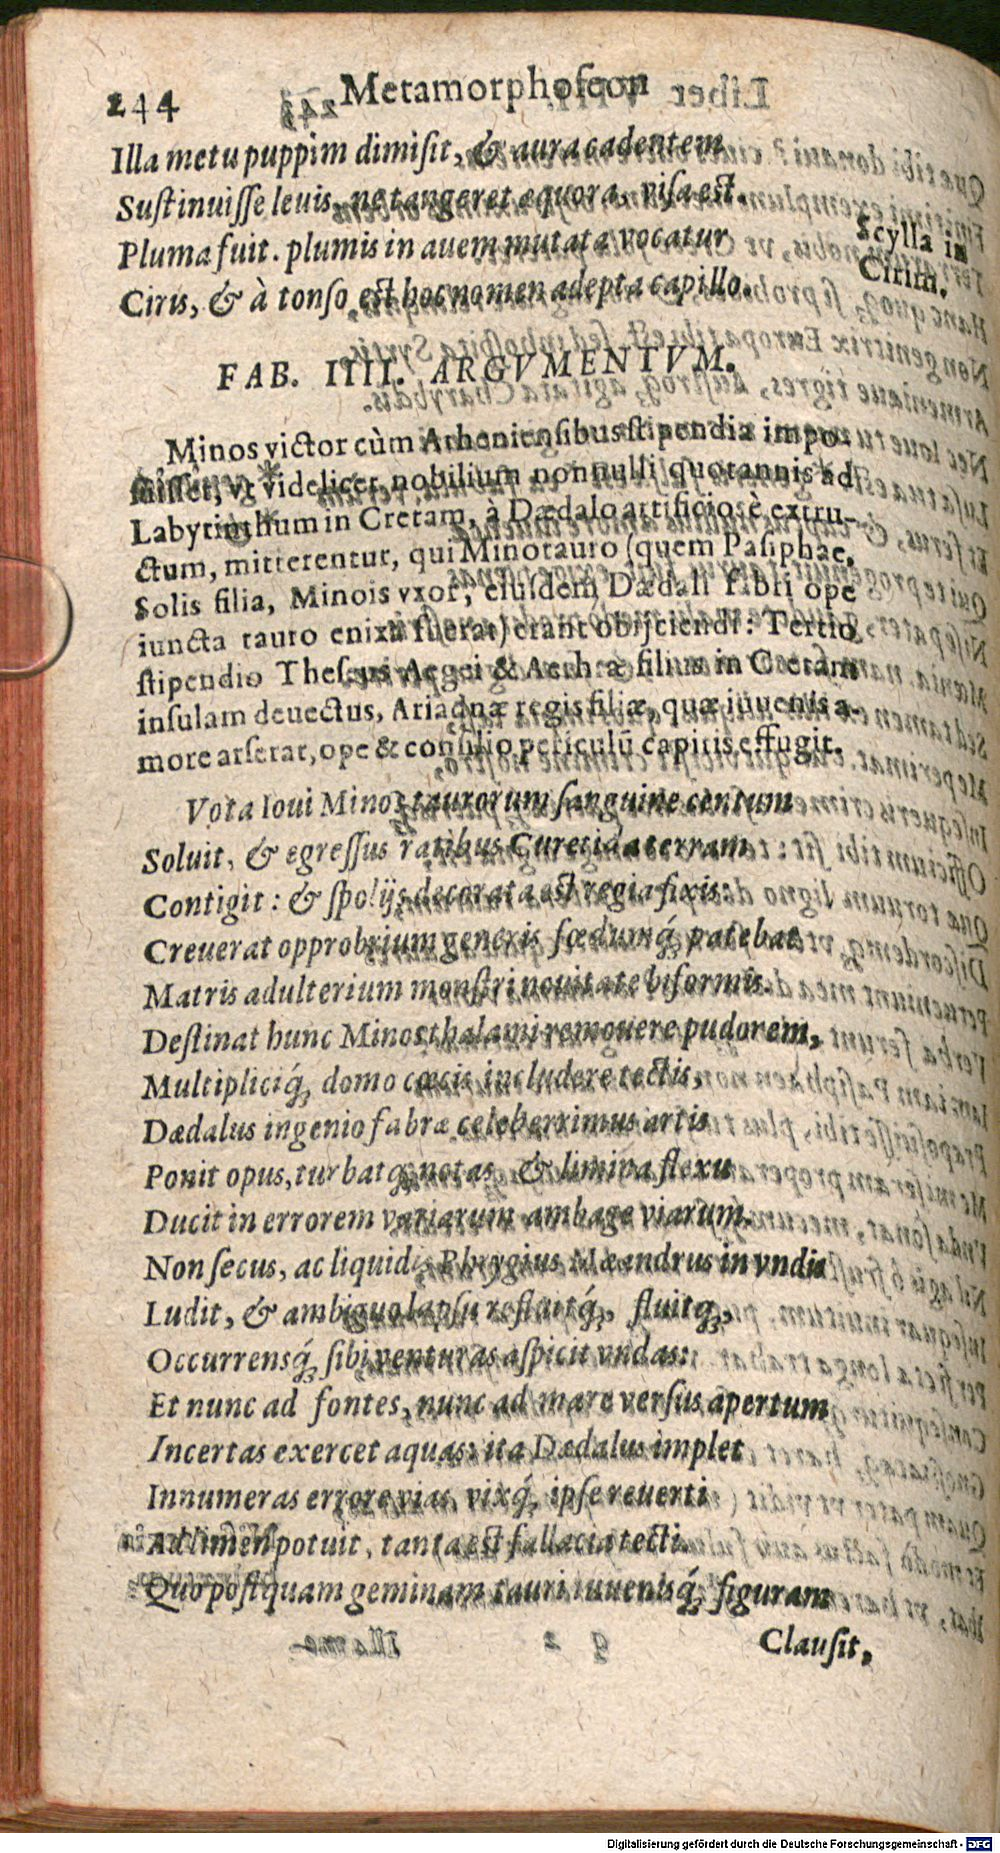 244 Metamorphoseon
Illa metu puppim dimisit, & aura cadentem
Sustinuisse leuis, ne tangeret æquora, visa est.
Pluma fuit. plumis in auem mutata vocatur
Scylla in
Cirim.
Ciris, & à tonso est hoc nomen adepta capillo.
FAB. IIII. ARGVMENTVM.
Minos victor cùm Atheniensibus stipendia impo-
suisset, vt videlicet nobilium nonnulli quotannis ad
Labyrinthum in Cretam, à Dædalo artificiosè extru-
ctum, mitterentur, qui Minotauro (quem Pasiphae,
Solis filia, Minois vxor, eiusdem Dædali Fabri ope
iuncta tauro enixa fuerat) erant obijciendi: Tertio
stipendio Theseus Aegei & Aethræ filius in Cretam
insulam deuectus, Ariadnæ regis filiæ, quæ iuuenis a-
more arserat, ope & consilio periculū capitis effugit.
Vota Ioui Minos taurorum sanguine centum
Soluit, & egressus ratibus Curetida terram
Contigit: & spolijs decorata est regia fixis.
Creuerat opprobrium generis fœdumq́; patebat
Matris adulterium monstri nouitate biformis.
Destinat hunc Minos thalami remouere pudorem,
Multipliciq́; domo cœcis includere tectis,
Dædalus ingenio fabræ celeberrimus artis
Ponit opus, turbatq; notas & limina flexu
Ducit in errorem variarum ambage viarum.
Non secus, ac liquidis Phrygius Mæandrus in vndis
Ludit, & ambiguo lapsu refluitq́;, fluitq;,
Occurrensq́; sibi venturas aspicit vndas:
Et nunc ad fontes, nunc ad mare versus apertum
Incertas exercet aquas: ita Dædalus implet
Innumeras errore vias, vixq́; ipse reuerti
Ad limen potuit, tanta est fallacia tecti.
Quo postquam geminam tauri iuuenisq́; figuram
Clausit,
Digitalisierung gefördert durch die Deutsche Forschungsgemeinschaft - DFG